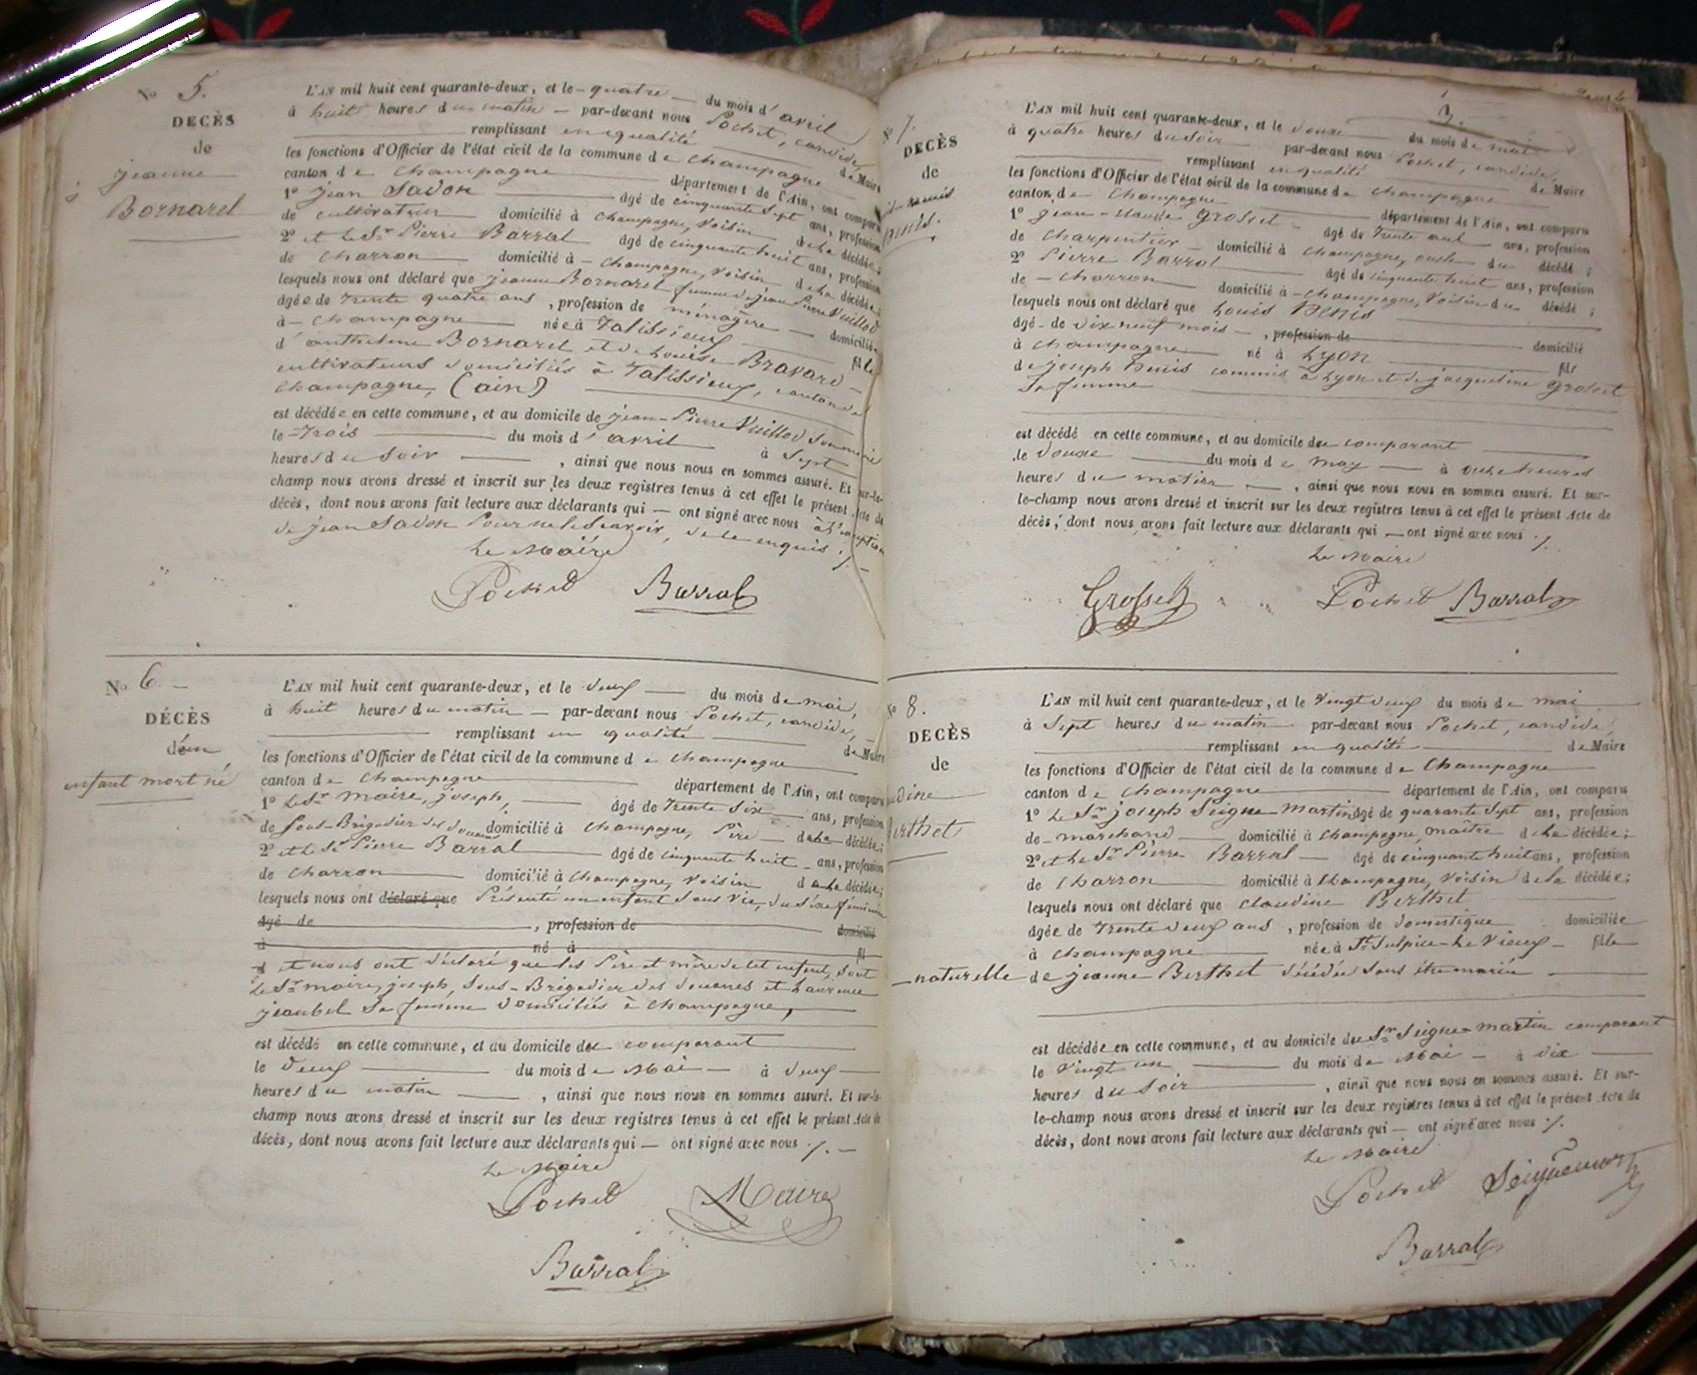 No 5.
DECÈS
de
jeanne
Bornarel
L'AN mil huit cent quarante-deux, et le quatre du mois d'avril
à huit heures du matin par-devant nous Pochet, candide,
remplissant en qualité de Maire
les fonctions d'Officier de l'état civil de la commune de Champagne
canton de Champagne département de l'Ain, ont comparu
1º jean Savon âgé de cinquante sept ans, profession
de cultivateur domicilié à Champagne, voisin de la décédée;
2º et le Sr Pierre Barral âgé de cinquante huit ans, profession
de charron domicilié à Champagne, voisin de la décédée;
lesquels nous ont déclaré que jeanne Bornarel femme de jean Pierre Vuillod
âgée de trente quatre ans, profession de ménagère domiciliée
à Champagne née à Talissieux fille
d'anthelme Bornarel et de Louise Bravard
cultivateurs domiciliés à Talissieux, canton de
Champagne, (ain)
est décédée en cette commune, et au domicile de jean-Pierre Vuillod son mari
le trois du mois d'avril à sept
heures du soir, ainsi que nous nous en sommes assuré. Et sur-le-
champ nous avons dressé et inscrit sur les deux registres tenus à cet effet le présent Acte de
décès, dont nous avons fait lecture aux déclarants qui ont signé avec nous à l'exception
de jean Savon pour ne le savoir, de ce enquis ./.
Le Maire
Pochet Barral
No 6.
DÉCÈS
d'un
enfant mort né
L'AN mil huit cent quarante-deux, et le deux du mois de mai,
à huit heures du matin par-devant nous Pochet, candide,
remplissant en qualité de Maire
les fonctions d'Officier de l'état civil de la commune de Champagne
canton de Champagne département de l'Ain, ont comparu
1º le Sr Maire, joseph, âgé de trente six ans, profession
de Sous-Brigadier des douanes domicilié à Champagne, Père de la décédée;
2º et le Sr Pierre Barral âgé de cinquante huit ans, profession
de charron domicilié à Champagne, voisin de la décédée;
lesquels nous ont déclaré que Présenté un enfant sans vie, du sexe féminin
âgé de , profession de domicilié
à né à fil
d et nous ont déclaré que les Père et mère de cet enfant, sont
le Sr Maire, joseph, Sous-Brigadier des douanes et Laurence
jeanbel sa femme domiciliés à Champagne,
est décédé en cette commune, et au domicile du comparant
le deux du mois de Mai à deux
heures du matin, ainsi que nous nous en sommes assuré. Et sur-le-
champ nous avons dressé et inscrit sur les deux registres tenus à cet effet le présent Acte de
décès, dont nous avons fait lecture aux déclarants qui ont signé avec nous ./.
Le Maire
Pochet Maire
Barral
3.
7.
DECÈS
de
L'AN mil huit cent quarante-deux, et le douze du mois de mai
à quatre heures du soir par-devant nous Pochet, candide,
remplissant en qualité de Maire
les fonctions d'Officier de l'état civil de la commune de Champagne
canton de Champagne département de l'Ain, ont comparu
1º jean-Claude Grosset âgé de trente ans, profession
de charpentier domicilié à Champagne, oncle du décédé;
2º Pierre Barral âgé de cinquante huit ans, profession
de charron domicilié à Champagne, voisin du décédé;
lesquels nous ont déclaré que Louis Denis
âgé de dix neuf mois, profession de domicilié
à Champagne né à Lyon fils
de joseph Denis commis à Lyon et de jacqueline Grosset
sa femme
est décédé en cette commune, et au domicile du comparant
le douze du mois de may à onze heures
heures du matin, ainsi que nous nous en sommes assuré. Et sur-
le-champ nous avons dressé et inscrit sur les deux registres tenus à cet effet le présent Acte de
décès, dont nous avons fait lecture aux déclarants qui ont signé avec nous ./.
Le Maire
Grosset Pochet Barral
No 8.
DECÈS
de
dine
Berthet
L'AN mil huit cent quarante-deux, et le vingt deux du mois de mai
à sept heures du matin par-devant nous Pochet, candide,
remplissant en qualité de Maire
les fonctions d'Officier de l'état civil de la commune de Champagne
canton de Champagne département de l'Ain, ont comparu
1º le Sr joseph Seigne Martin âgé de quarante sept ans, profession
de marchand domicilié à Champagne, maître de la décédée;
2º et le Sr Pierre Barral âgé de cinquante huit ans, profession
de charron domicilié à Champagne, voisin de la décédée;
lesquels nous ont déclaré que Claudine Berthet
âgée de trente deux ans, profession de domestique domiciliée
à Champagne née à St Sulpice-le Vieux fille
naturelle de jeanne Berthet décédée sans être mariée
est décédée en cette commune, et au domicile du Sr Seigne-Martin comparant
le vingt un du mois de Mai à dix
heures du soir, ainsi que nous nous en sommes assuré. Et sur-
le-champ nous avons dressé et inscrit sur les deux registres tenus à cet effet le présent Acte de
décès, dont nous avons fait lecture aux déclarants qui ont signé avec nous ./.
Le Maire
Pochet Seignemartin
Barral